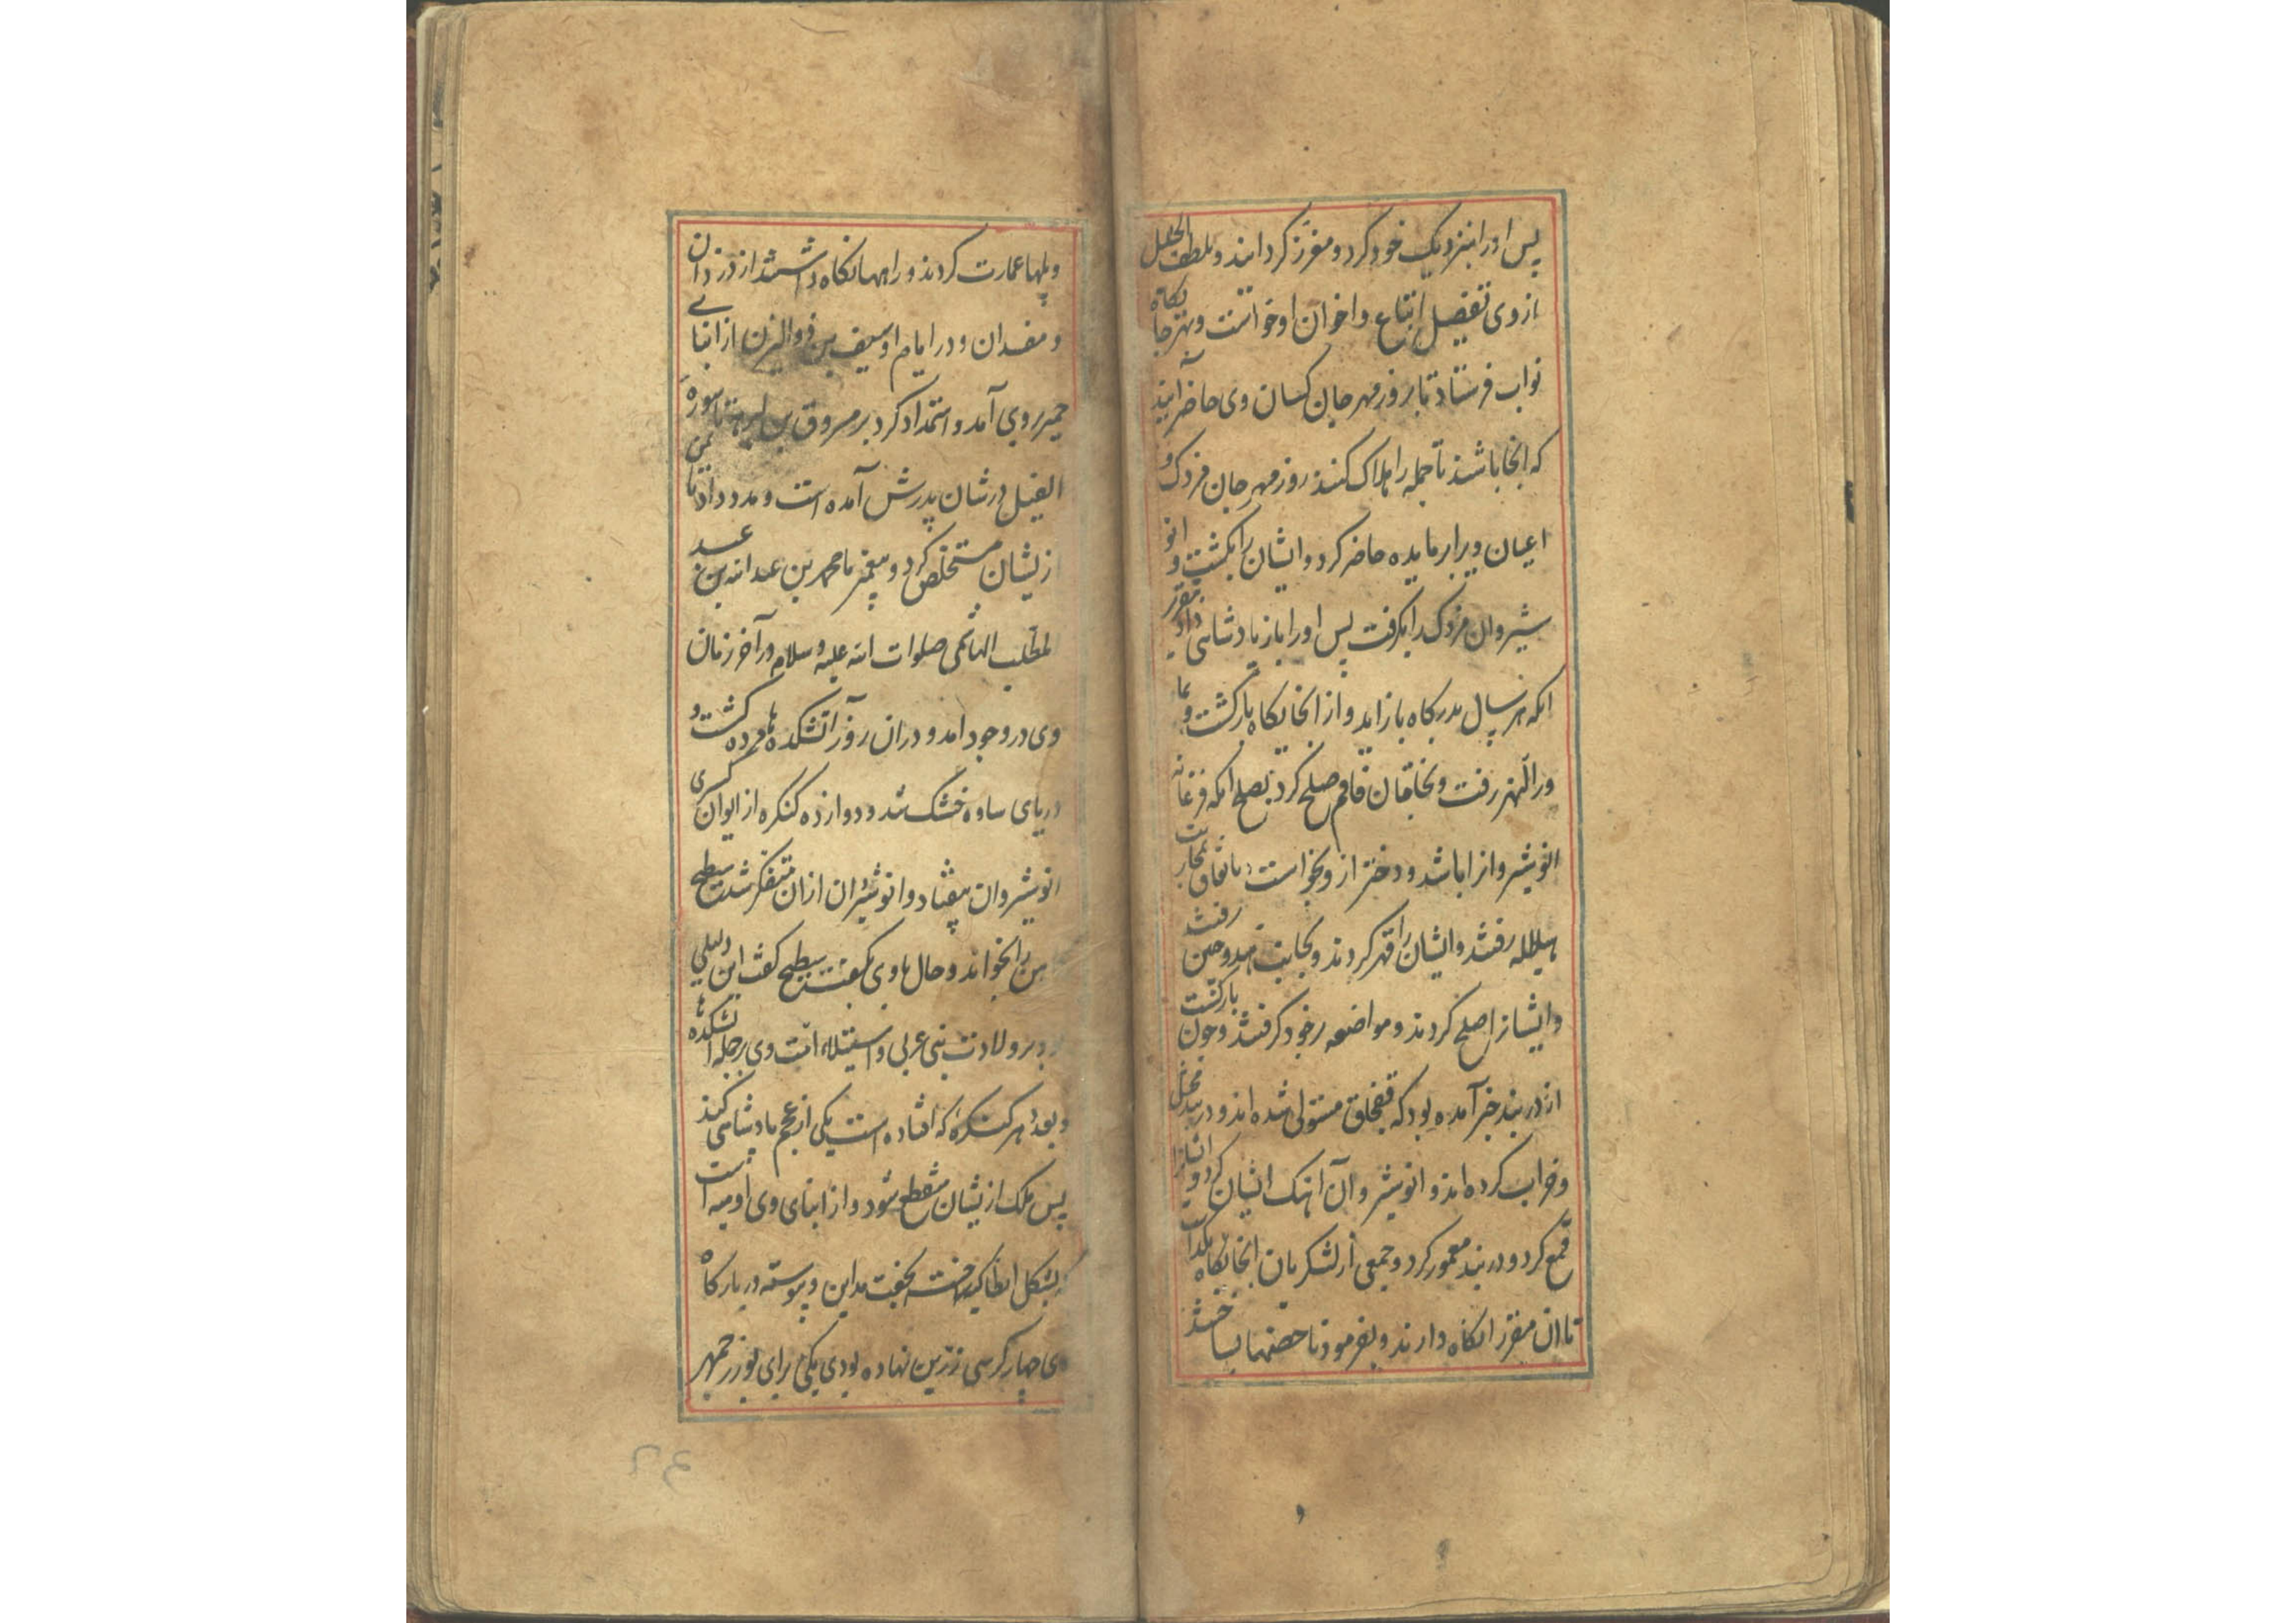 پس او را بنزدیک خود کرد و معزز کردانید و بلطف الحیل
از وی تفصیل اتباع و اخوان او خواست و بهر جا بکاه
نواب فرستاد تا بروز مهرجان کسان وی حاضر آیند
که انجا باشند تا جمله را هلاک کنند روز مهرجان مزدک و
اعیان ویرا بر مایده حاضر کرد و ایشان را بکشت و انو
شیروان مزدک را بکرفت پس او را باز بادشاهی داد مقرر
انکه هر سال بدرکاه باز اید و از انجایکاه بازکشت و بما
ورا النهر رفت و بخاقان قاقم صلح کرد بصلح انکه فرغانه
انوشیروانرا باشد و دختر از و بخواست باتفاق بمحاربت
هیاطله رفتند و ایشان را قهر کردند و بجانب هند و چین رفت
و ایشانرا صلح کردند و مواضعه بر خود کرفتند و چون بازکشت
از دربند خبر آمده بود که قفجاق مستولی شده اند و دربند مختل
و خراب کرده اند و انوشیروان آهنک ایشان کرد و ایشانرا
قمع کرد و دربند معمور کرد و جمعی از لشکریان انجایکاه بکذاشت
تا ان مقر را نکاه دارند و بفرمود تا حصنها بساختند
و پلها عمارت کردند و راهها نکاه داشتند از دزدان
و مفسدان و در ایام او سیف بن ذوالیزن از ابنا
حمیر بروی آمد و استمداد کرد بر مسروق بن ابرهه تا سوره
الفیل در شان پدرش آمده است و مدد داد تا یمن
زیشان مستخلص کرد و پیغمبر ما محمد بن عبد الله بن عبد
لمطلب الهاشمی صلوات الله علیه و سلام در آخر زمان
وی در وجود امد و دران روز آتشکده ها مرده کشت و
دریای ساوه خشک شد و دوازده کنکره از ایوان کسری
انوشیروان بیفتاد و انوشیروان ازان متفکر شد سطیح
هن را بخواند و حال با وی بکفت سطیح کفت این دلیلی
بر ولادت نبی عربی و استیلاء امت وی بر جمله آتشکده ها
و بعدد هر کنکره که افتاده است یکی از عجم بادشاهی کند
پس ملک از یشان منقطع شود و از ابنای وی رومیه است
بشکل انطاکیه بجنب مداین و پیوسته در بارکاه
وی چهار کرسی زرین نهاده بودی یکی برای بوزرجمهر